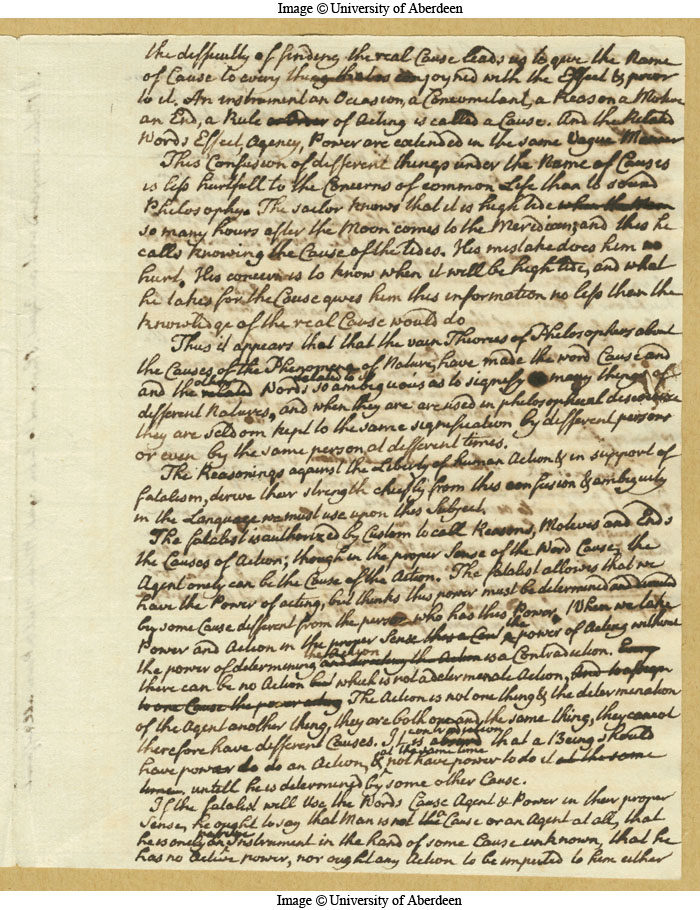 Image © University of Aberdeen
the difficulty of finding the real Cause leads us to give the Name
of Cause to every thing that is conjoyned with the Effect & prior
to it. An instrument an Occasion, a Concomitant, a Reason a Motive
an End, a Rule or Order of Acting is called a Cause. And the Related
Words Effect, Agency, Power are extended in the same Vague Manner
This Confusion of different things under the Name of Causes
is less hurtfull to the Concerns of common Life than to sound
Philosophy. The sailor knows that it is high tide when the Moon
so many hours after the Moon comes to the Meridian; and this he
calls knowing the Cause of the tides. His mistake does him no
hurt. His concern is to know when it will be high tide, and what
he takes for the Cause gives him this information no less than the
knowledge of the real Cause would do
Thus it appears that that the vain Theories of Philosophers about
the Causes of the Phenomena of Nature, have made the word Cause and
and the other related Words related to it so ambiguous as to signify many things of
different Natures, and when they are are used in philosophical discourse
they are seldom kept to the same signification by different persons
or even by the same person at different times.
The Reasonings against the Liberty of human Action & in support of
fatalism, derive their strength chiefly from this confusion & ambiguity
in the Language we must use upon this Subject.
The fatalist is authorized by Custom to call Reasons, Motives and Ends
the Causes of Action; though in the proper Sense of the Word Cause, the
Agent onely can be the Cause of the Action. The fatalist allows that we
have the Power of acting, but thinks this power must be determined and
by some Cause different from the person who has this Power. When we take
Power and Action in the proper Sense the power of Acting without
the power of determining the Action and directing the Action is a Contradiction. Every
there can be no Action but which is not a determinate Action, And to
to one Cause the power The Action is not one thing & the determination
of the Agent another thing, they are both one and the same thing, they cannot
therefore have different Causes. It is absurd contradiction that a Being should
have power to do an Action, & at the same time not have power to do it at the same
time, untill he is determined by some other Cause.
If the fatalist will Use the Words Cause Agent & Power in their proper
Sense, he ought to say that Man is not the Cause or an Agent at all, that
he is onely a passive Instrument in the hand of some Cause unknown, that he
has no active power, nor ought any Action to be imputed to him either
Image © University of Aberdeen